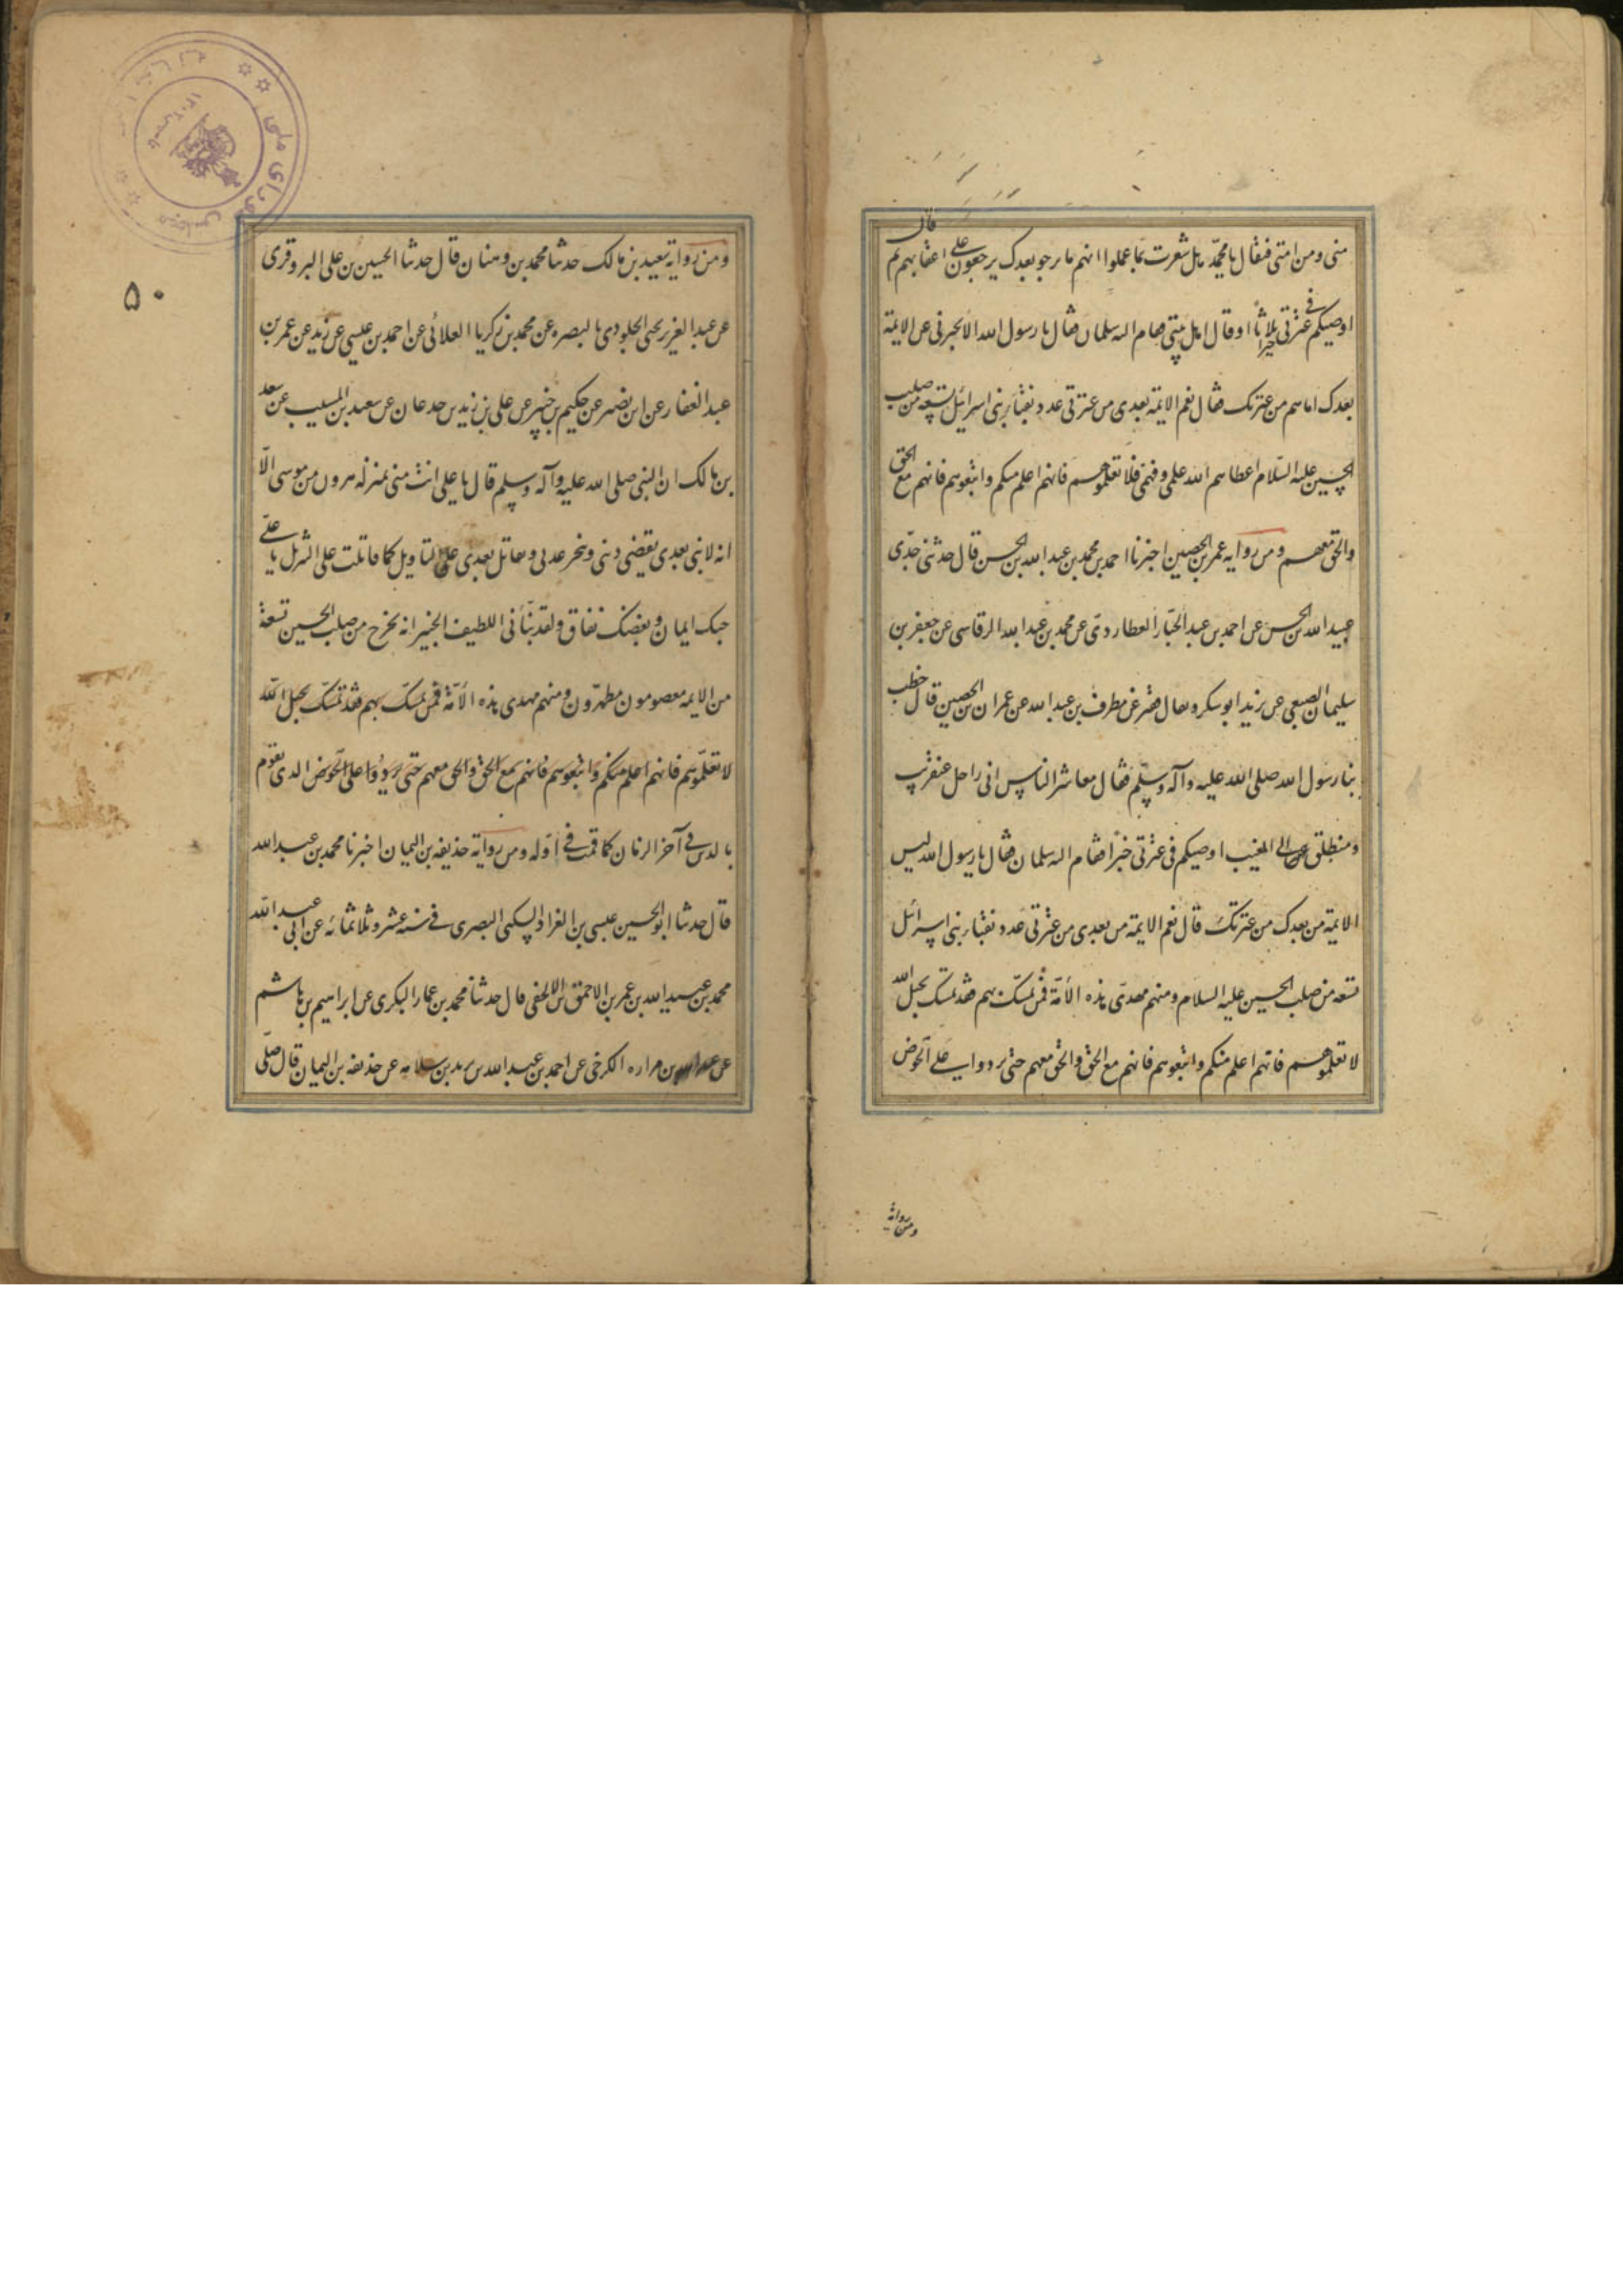 منى ومن امتى فيقال يا محمد هل شعرت بما عملوا انهم ما برحو بعدك يرجعون على اعقابهم ثم قال
اوصيكم فى عترتى خيرا ثلاثا او قال اهل بيتى فقام اليه سلمان فقال يا رسول الله الا تخبرنى عن الايمة
بعدك اما هم من عترتك فقال نعم الايمة بعدى من عترتى عدد نقباء بنى اسرائيل تسعة من صلب
الحسين عليه السلام اعطاهم الله علمى وفهمى فلا تعلموهم فانهم اعلم منكم واتبعوهم فانهم مع الحق
والحق معهم ومن رواية عمر بن الحصين اخبرنا احمد بن محمد بن عبد الله بن الحسن قال حدثنى جدى
عبيد الله بن الحسن عن احمد بن عبد الجبار العطاردى عن محمد بن عبد الله الرقاسى عن جعفر بن
سليمان الضبعى عن يزيد عن مطرف بن عبد الله عن عمران بن الحصين قال خطب
بنا رسول الله صلى الله عليه وآله وسلم فقال معاشر الناس انى راحل عنقريب
ومنطلق الى المغيب اوصيكم فى عترتى خيرا فقام اليه سلمان فقال يا رسول الله ليس
الايمة من بعدك من عترتك قال نعم الايمة من بعدى من عترتى عدد نقباء بنى اسرائيل
تسعة من صلب الحسين عليه السلام ومنهم مهدى هذه الأمة فمن تمسك بهم فقد تمسك بحبل الله
لا تعلموهم فانهم اعلم منكم واتبعوهم فانهم مع الحق والحق معهم حتى يردوا على الحوض
ومن رواية
٥٠
ومن رواية سعيد بن مالك حدثنا محمد بن وهبان قال حدثنا الحسين بن على البزوفرى
عن عبد العزيز يحيى الجلودى بالبصره عن محمد بن زكريا العلائى عن احمد بن عيسى عن زيد عن عمر بن
عبد الغفار عن ابى نصر عن حكيم بن جبير عن على بن زيد بن جدعان عن سعيد بن المسيب عن سعد
بن مالك ان النبى صلى الله عليه وآله وسلم قال يا على انت منى بمنزله هرون من موسى الا
انه لا نبى بعدى تقضى دينى وتنجز عدتى وتقاتل بعدى على التاويل كما قاتلت على التنزيل يا على
حبك ايمان وبغضك نفاق ولقد نبأنى اللطيف الخبير انه يخرج من صلب الحسين تسعة
من الايمه معصومون مطهرون ومنهم مهدى هذه الأمة فمن تمسك بهم فقد تمسك بحبل الله
لا تعلموهم فانهم اعلم منكم واتبعوهم فانهم مع الحق والحق معهم حتى يردوا على الحوض الذى يقوم
بالدين فى آخر الزمان كما قمت فى اوله ومن رواية حذيفه بن اليمان اخبرنا محمد بن عبد الله
قال حدثنا ابو الحسين عيسى بن العراد البصرى فى سنه عشر وثلاثمائه عن ابى عبد الله
محمد بن عبيد الله بن عمر بن قال حدثنا محمد بن عمار السكرى عن ابراهيم بن هاشم
عن عبد الله بن الكرخى عن احمد بن عبد الله بن يزيد بن سلامه عن حذيفه بن اليمان قال صلى